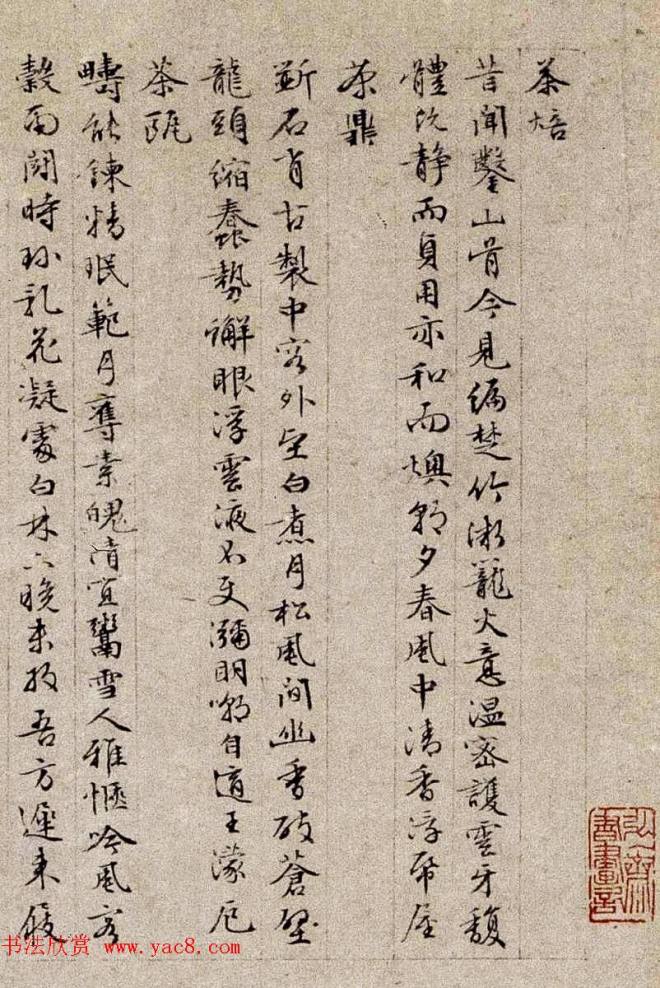 茶焙
昔聞鑿山骨今見編楚竹微籠火意溫密護雲牙馥
體既靜而貞用亦和而燠朝夕春風中清香浮帋屋
茶鼎
斲石肖古製中容外堅白煮月松風間幽香破蒼壁
龍頭縮蠢勢蟹眼浮雲液不使彌明嘲自適王濛厄
茶甌
疇能鍊精珉範月奪素魄清宜鬻雪人雅愜吟風客
穀雨鬬時珍乳花凝處白林下晚未收吾方遲來屐
书法欣赏 www.yac8.com